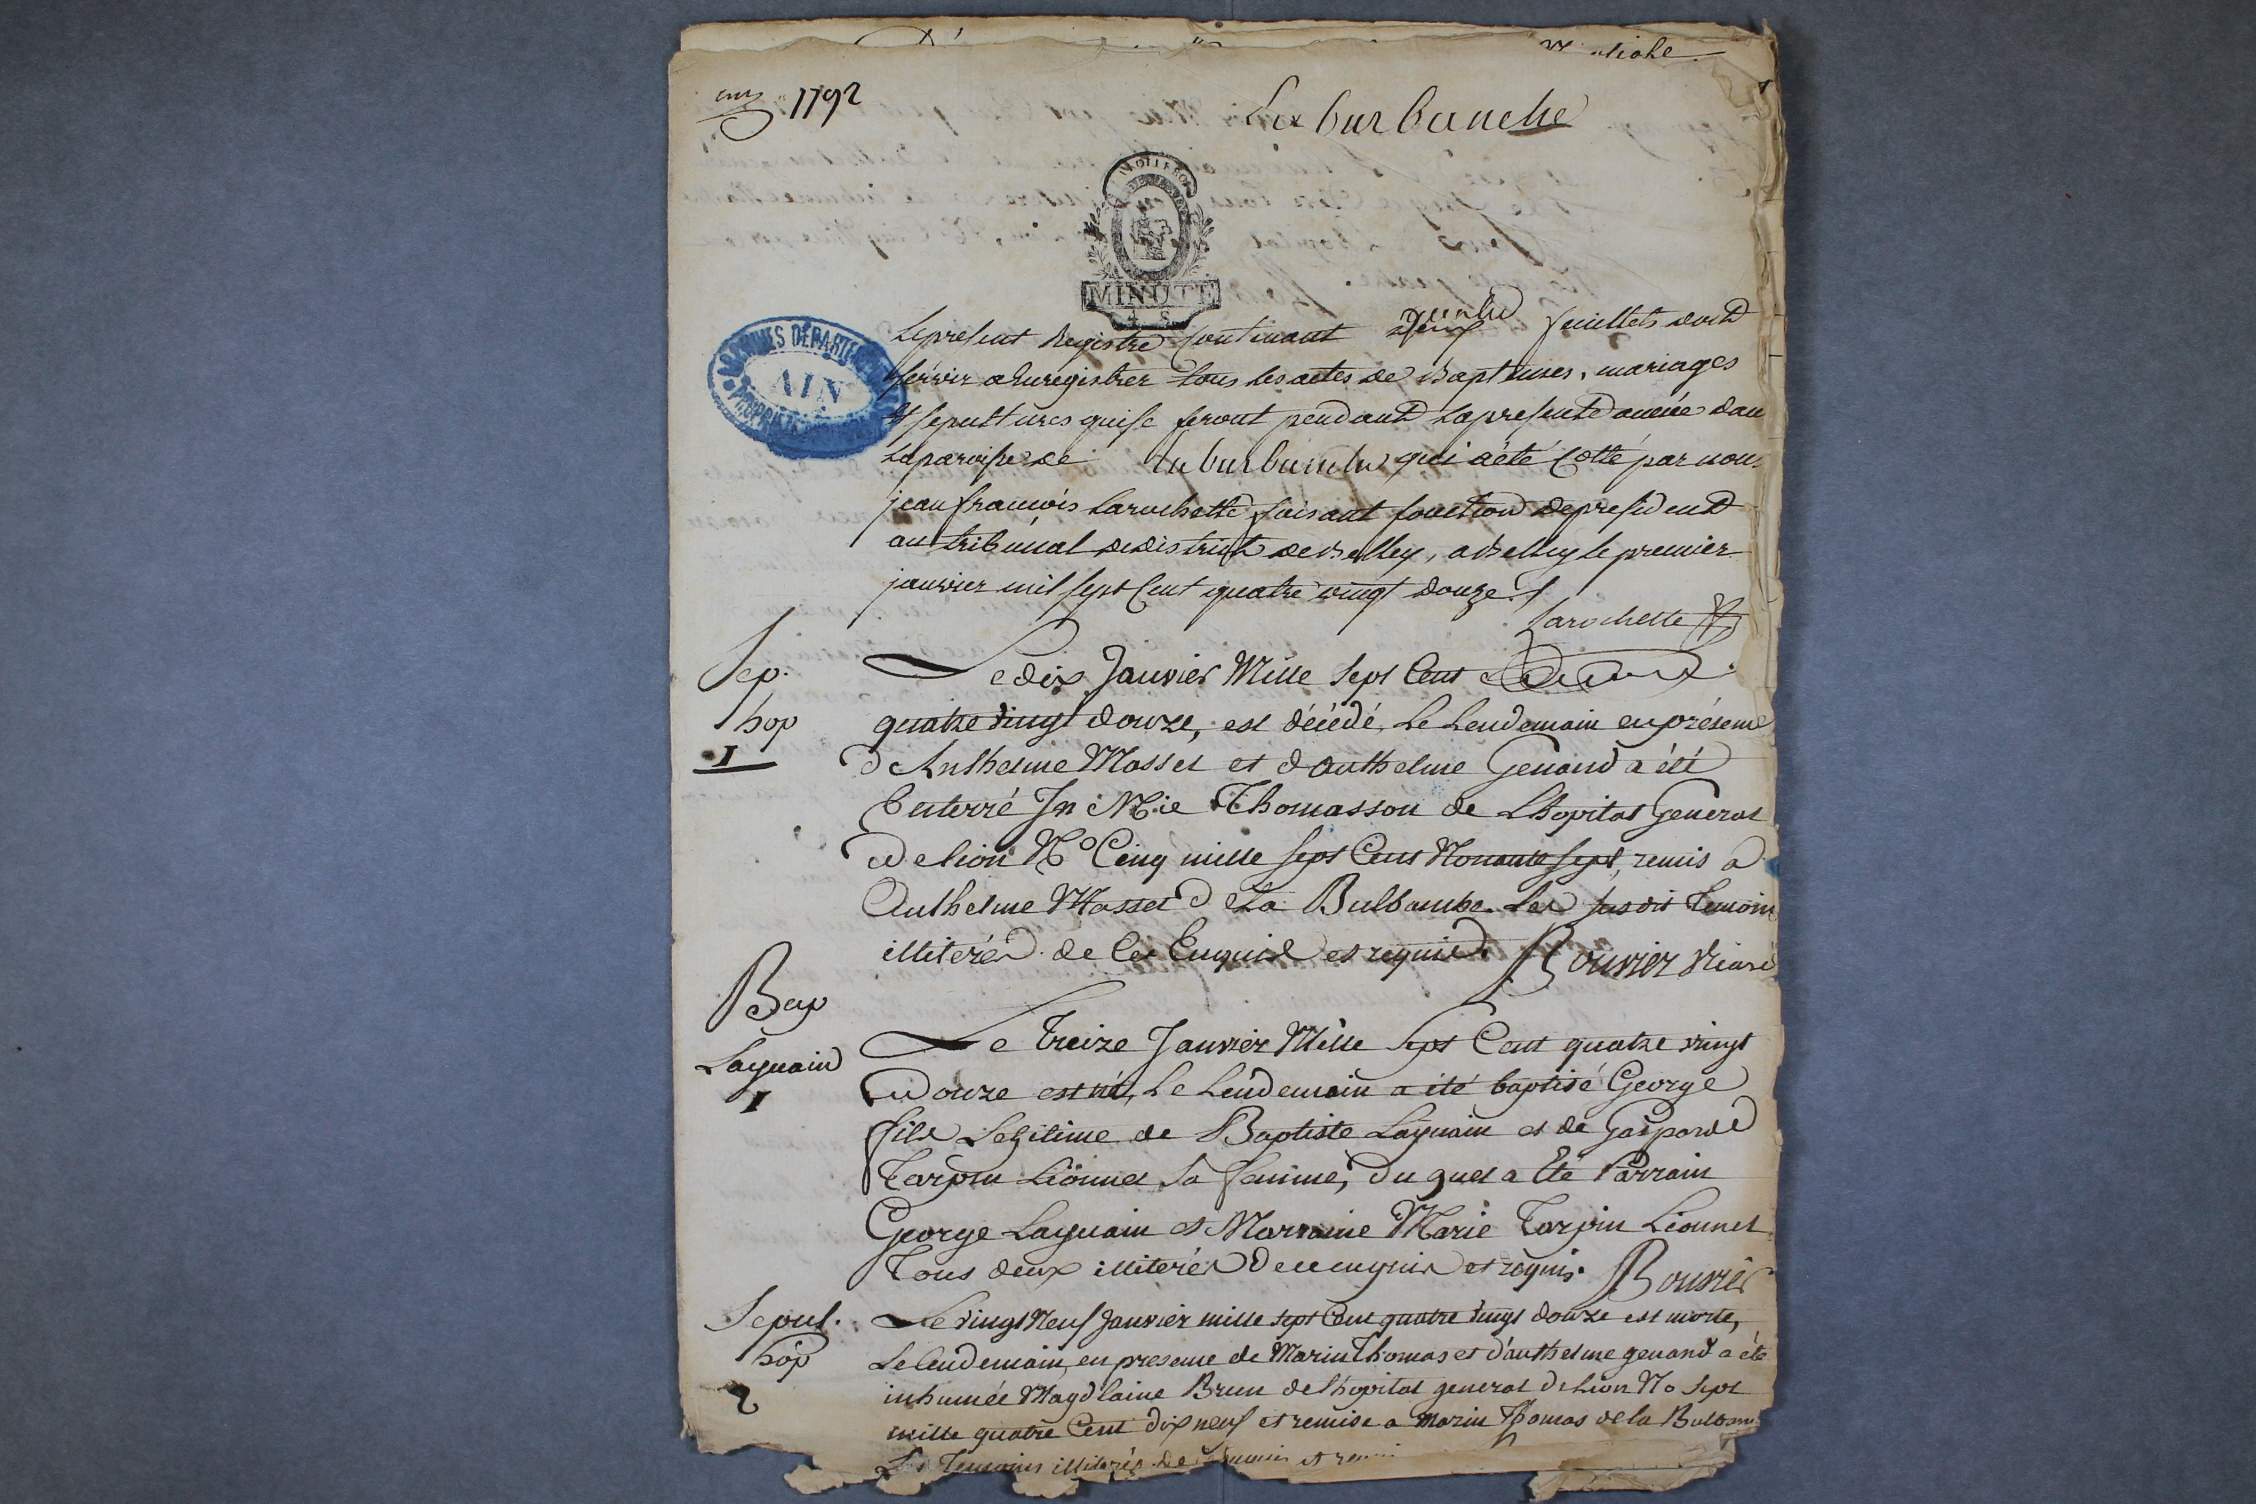 1792
La burbanche
LA LOI LE ROI
MINUTE
4 S
ARCHIVES DÉPARTEMENTALES
AIN
PROPRIÉTÉ
Le present Registre Contenant feuillets doit
servir a Enregistrer tous les actes de Baptemes, mariages
et sepultures qui se feront pendant la presente année dans
la paroisse de la burbanche qui a été Cotté par nous
jean françois Larochette faisant fonction de president
au tribunal de district de Belley, a Belley le premier
janvier mil sept Cent quatre vingt douze
Larochette
Sep.
hop
1
Le dix Janvier Mille Sept Cent
quatre vingt douze, est décédé, Le Lendemain en présence
d'Anthelme Masset et d'anthelme Genand a été
Enterré Jn Mie Thomasson de L'hopital General
de Lion No Cinq mille sept Cent Nonante sept, remis a
Anthelme Masset de La Bulbanche. Les susdit Temoins
illiterés de Ce Enquis et requis. Bouvier Vicaire
Bap
Laguain
1
Le treize Janvier Mille Sept Cent quatre vingt
douze est né, Le Lendemain a été baptisé George
fils Legitime de Baptiste Laguain et de Gasparde
Tarpin Lionnet Sa femme, du quel a Eté Parrain
George Laguain et Marraine Marie Tarpin Lionnet
Tous deux illiterés de ce enquis et requis. Bouvier
Sepul.
hop
2
Le vingt Neuf Janvier mille sept Cent quatre vingt douze est morte,
Le lendemain, en presence de Marin Thomas et d'anthelme genand a été
inhumée Magdlaine Brun de l'hopital general de Lion No Sept
mille quatre Cent dix neuf et remise a Marin Thomas de la Bulban
Les Temoins illiterés de et